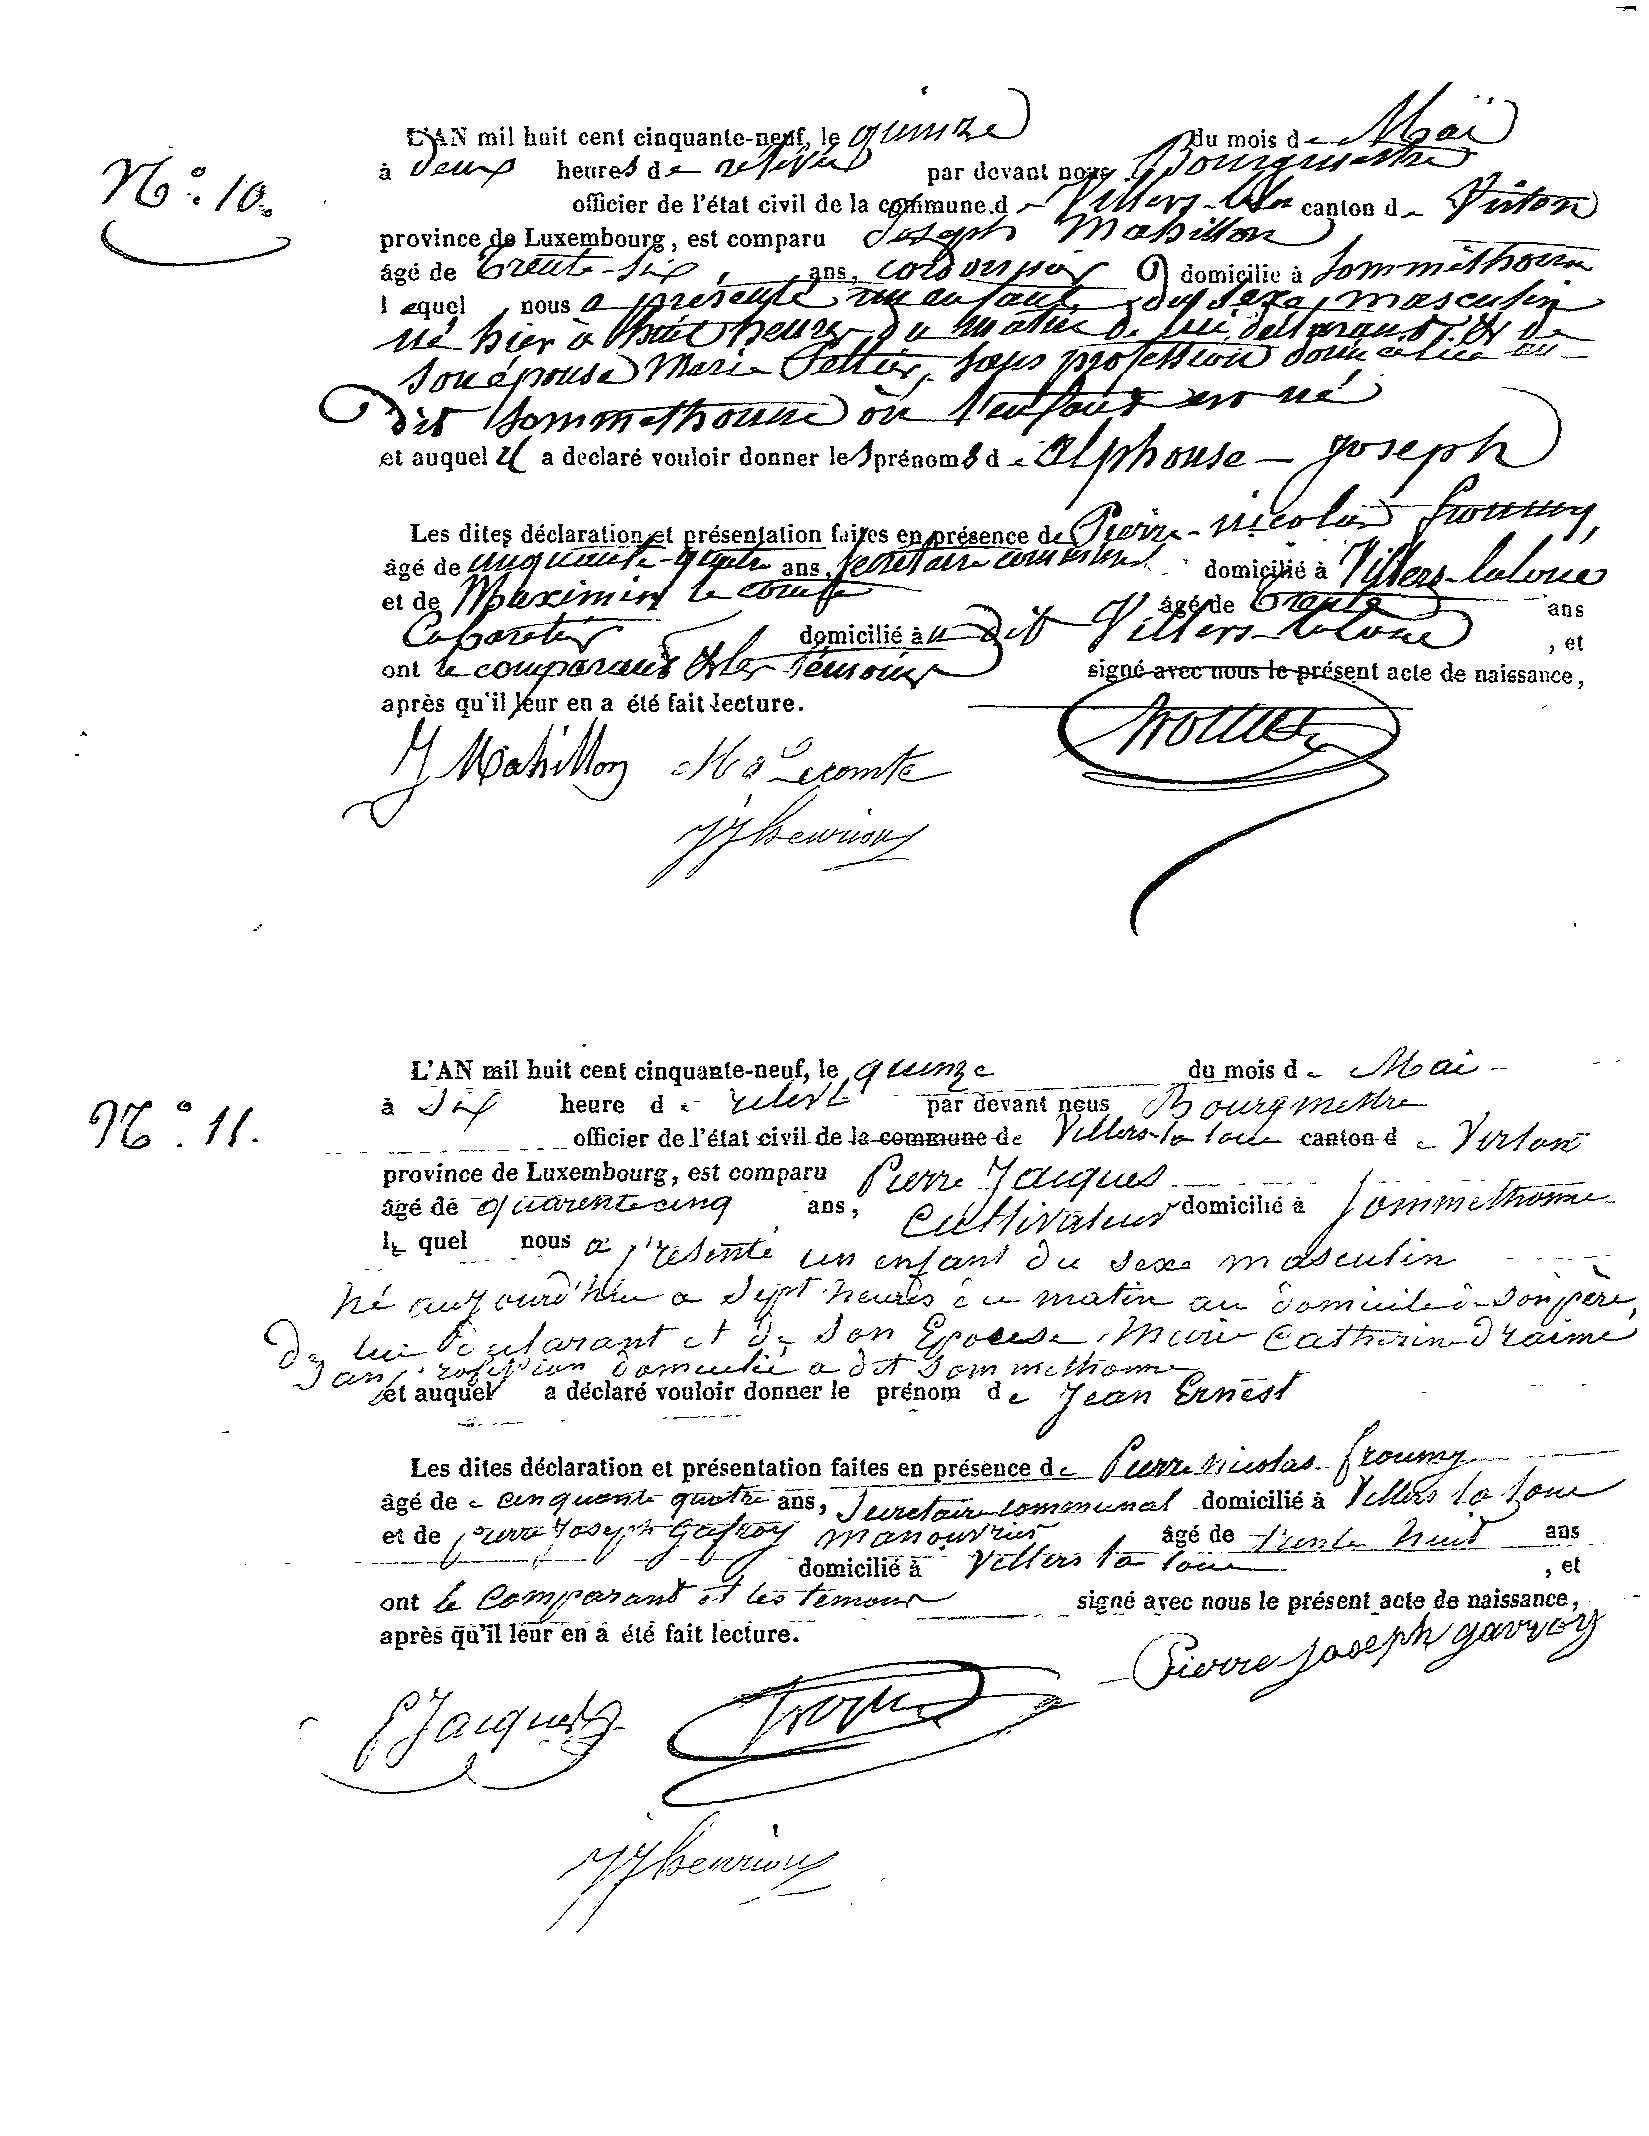 N° 10.
L'AN mil huit cent cinquante-neuf, le quinze du mois de Maï
à deux heures de relevée par devant nous Bourgmestre
officier de l'état civil de la commune de Villers-la- canton de Virton
province de Luxembourg, est comparu Joseph Mabillon
âgé de trente-six ans, cordonnier domicilié à Sommethonne
lequel nous a présenté un enfant du sexe masculin
né hier à huit heures du matin de lui déclarant & de
son épouse Marie Peltier, sans profession domiciliée au
dit Sommethonne où l'enfant est né
et auquel il a declaré vouloir donner les prénoms de Alphonse - Joseph
Les dites déclaration et présentation faites en présence de Pierre-nicolas froumy,
âgé de cinquante-quatre ans, secrétaire communal domicilié à Villers-laloue
et de Maximin le comte âgé de trente ans
Cabaretier domicilié à u dit Villers-laloue , et
ont le comparant & les témoins signé avec nous le présent acte de naissance,
après qu'il leur en a été fait lecture.
J Mabillon Ma Lecomte froumy
JJ henrion
N° 11.
L'AN mil huit cent cinquante-neuf, le quinze du mois de Mai
à six heure de relevé par devant nous Bourgmestre
officier de l'état civil de la commune de Villers-la loue canton de Virton
province de Luxembourg, est comparu Pierre Jacques
âgé de quarente cinq ans, Cultivateur domicilié à Sommethonne
le quel nous a présenté un enfant du sexe masculin
né aujourd'hui a sept heures du matin au domicile de son père,
De lui Déclarant et de son Epouse Marie Catherine Draime
sans profession domicilié a dit Sommethonne
et auquel a déclaré vouloir donner le prénom de Jean Ernest
Les dites déclaration et présentation faites en présence de Pierre nicolas froumy
âgé de cinquente quatre ans, Secretaire communal domicilié à Villers la loue
et de pierre Joseph Gavroy manouvrier âgé de trente huit ans
domicilié à Villers la loue , et
ont le comparant et les temoins signé avec nous le présent acte de naissance,
après qu'il leur en a été fait lecture.
Pierre joseph gavroy
P Jacques froumy
JJ henrion